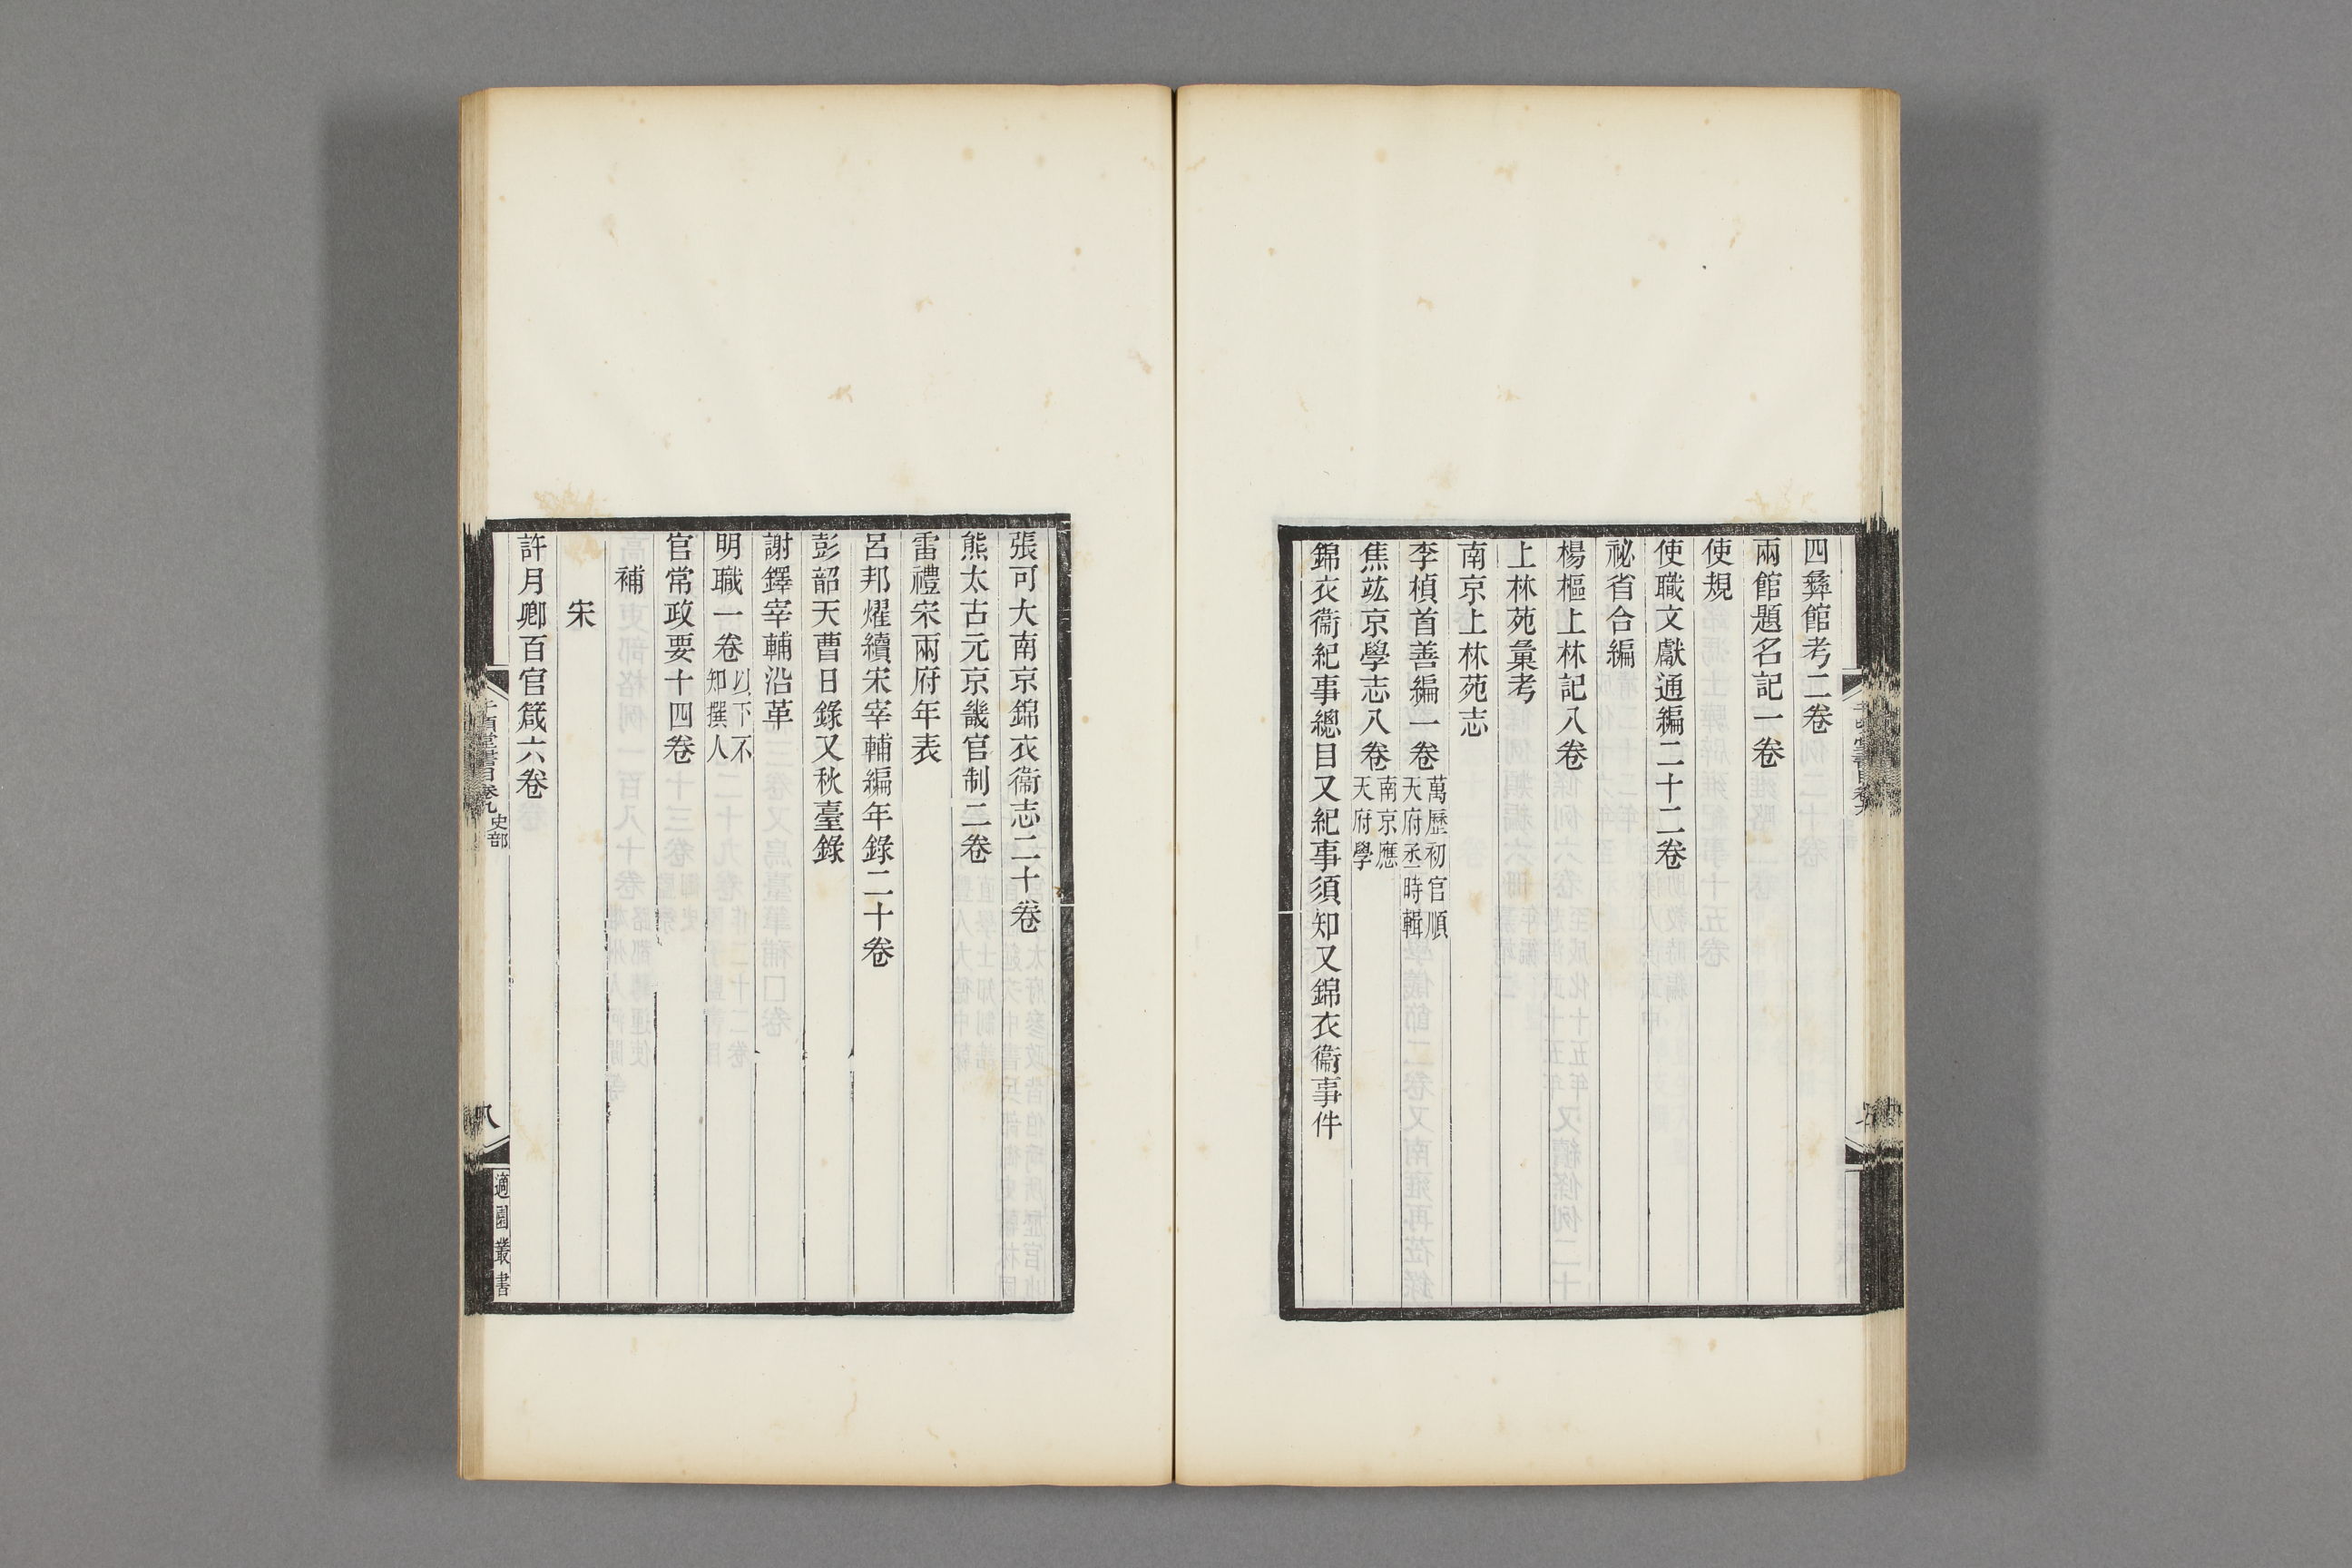 四彝館考二卷
兩館題名記一卷
使規
使職文獻通編二十二卷
祕省合編
楊樞上林記八卷
上林苑彙考
南京上林苑志
李楨首善編一卷萬歷初官順天府丞時輯
焦竑京學志八卷南京應天府學
錦衣衞紀事總目又紀事須知又錦衣衞事件
張可大南京錦衣衞志二十卷
熊太古元京畿官制二卷
雷禮宋兩府年表
呂邦燿續宋宰輔編年錄二十卷
彭韶天曹日錄又秋臺錄
謝鐸宰輔沿革
明職一卷以下不知撰人
官常政要十四卷
補
宋
許月卿百官箴六卷
千頃堂書目卷九史部
八
適園叢書